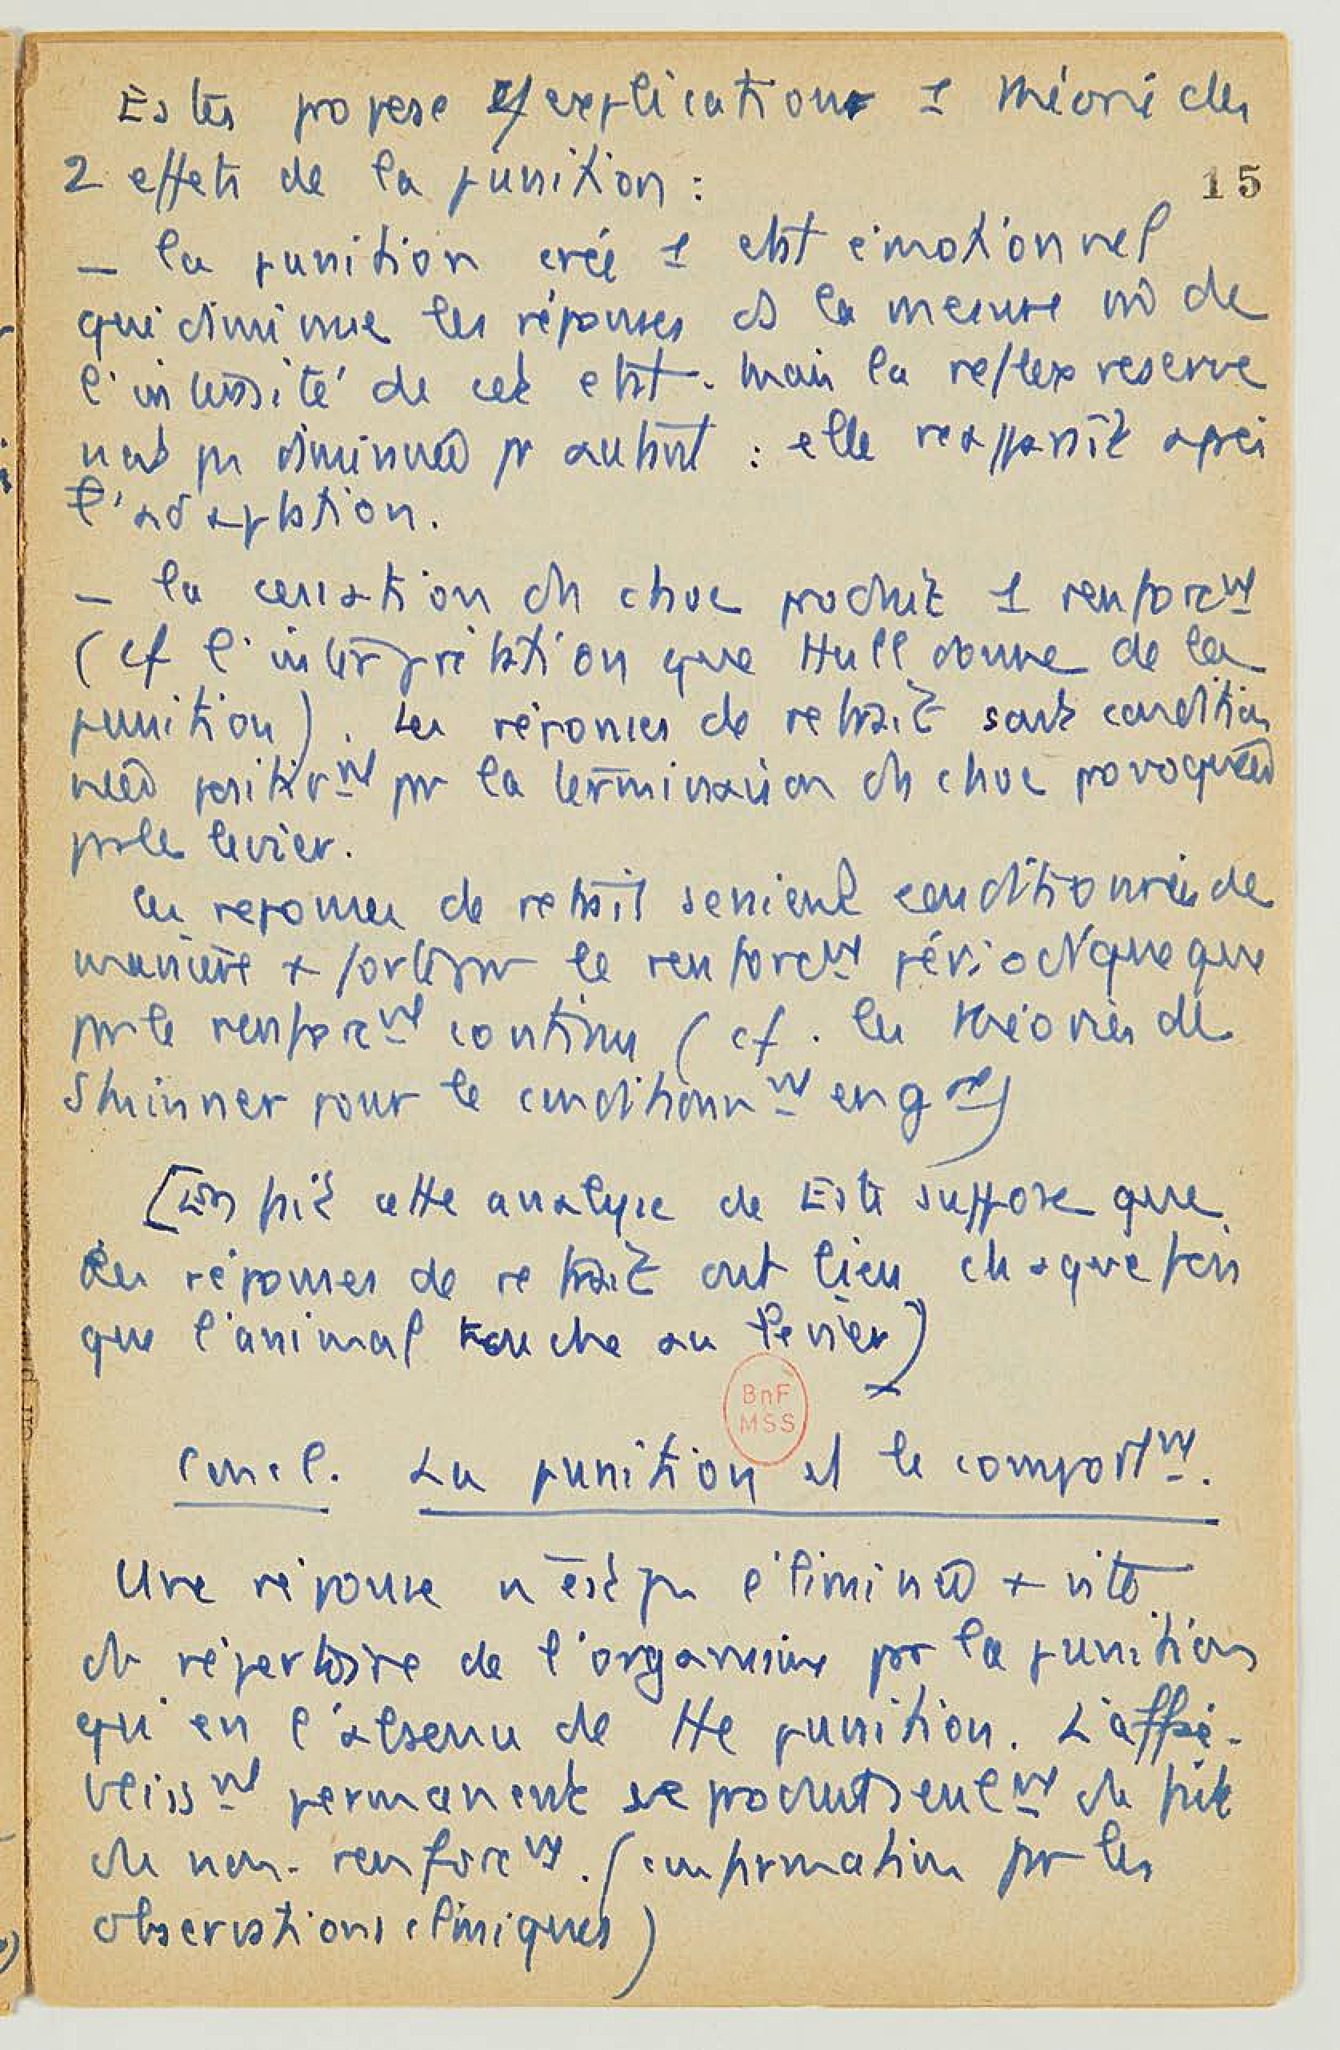 Estes propose c/ explication 1 théorie des
2 effets de la punition :
15
— la punition crée 1 état émotionnel
qui diminue les réponses ds la mesure où de
l'intensité de cet état. Mais la reflex reserve
n'est pas diminuée pr autant : elle reapparaît après
l'adaptation.
— la cessation du choc produit 1 renforcnt
(cf l'interprétation que Hull donne de la
punition). Les réponses de retrait sont condition
nées positivnt par la terminaison du choc provoquée
par le levier.
Les reponses de retrait seraient conditionnées de
manière + forte par le renforcnt périodique que
par le renforcnt continu (cf. les théories de
Skinner pour le conditionnnt en gal)
[En fait cette analyse de Estes suppose que
les réponses de retrait ont lieu chaque fois
que l'animal touche au levier)
BnF
MSS
Concl. La punition et le comportnt.
Une réponse n'est pas éliminée + vite
du répertoire de l'organisme par la punition
qu'en l'absence de tte punition. L'affai-
blissnt permanent se produit seulent du fait
du non-renforcnt. (confirmation par les
observations cliniques)